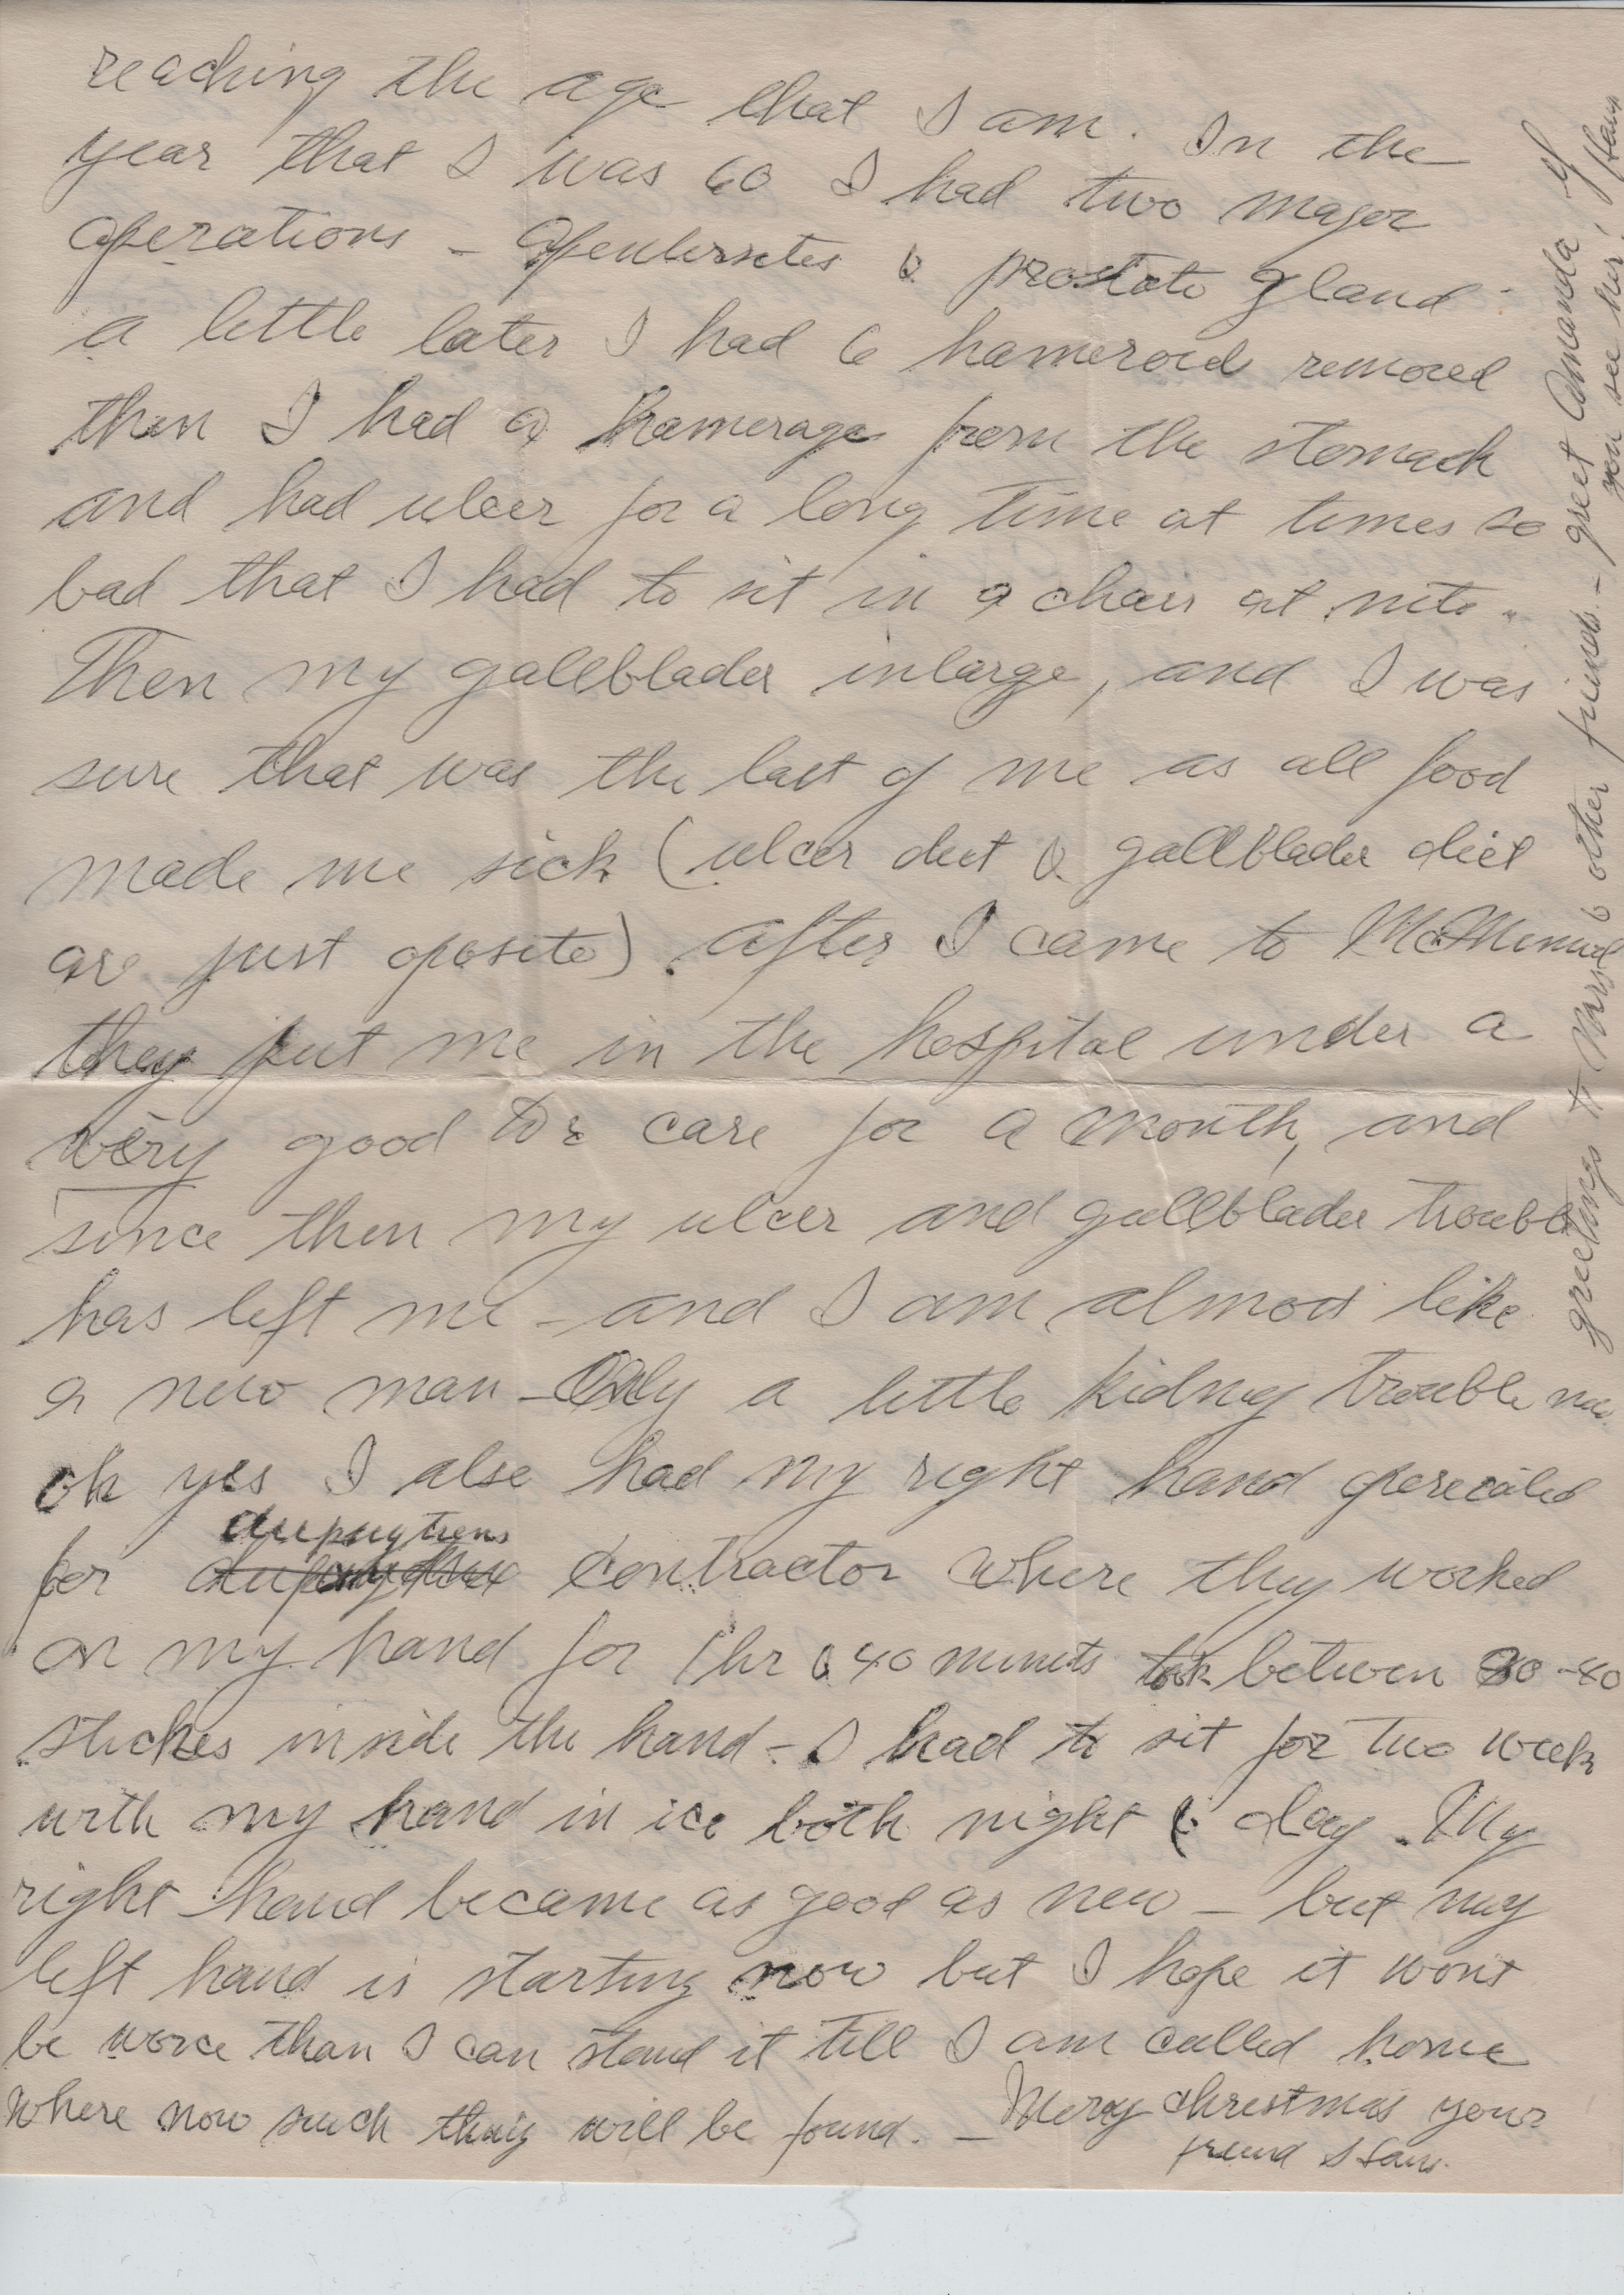 reaching the age that I am. In the
year that I was 60 I had two major
operations - & prostate gland -
a little later I had 6 hameroids removed
then I had a hamerage from the stomach
and had ulcer for a long time at times so
bad that I had to sit in a chair at nite.
Then my gallblader inlarge, and I was
sure that was the last of me as all food
made me sick (ulcer diet & gallblader diet
are just oposite). after I came to
they put me in the hospital under a
very good Drs care for a month, and
since then my ulcer and gallblader trouble
has left me - and I am almost like
a new man - Only a little kidney trouble now.
oh yes I also had my right hand
dupuytrens
for contractor where they worked
on my hand for 1 hr & 40 minuts took between 30-40
stiches inside the hand - I had to sit for two weeks
with my hand in ice both night & day. My
right hand became as good as new - but my
left hand is starting now but I hope it wont
be worce than I can stand it till I am called home
where now such thing will be found. - Merry christmas your
friend
greetings to & other friends - greet Amanda if
you see her,